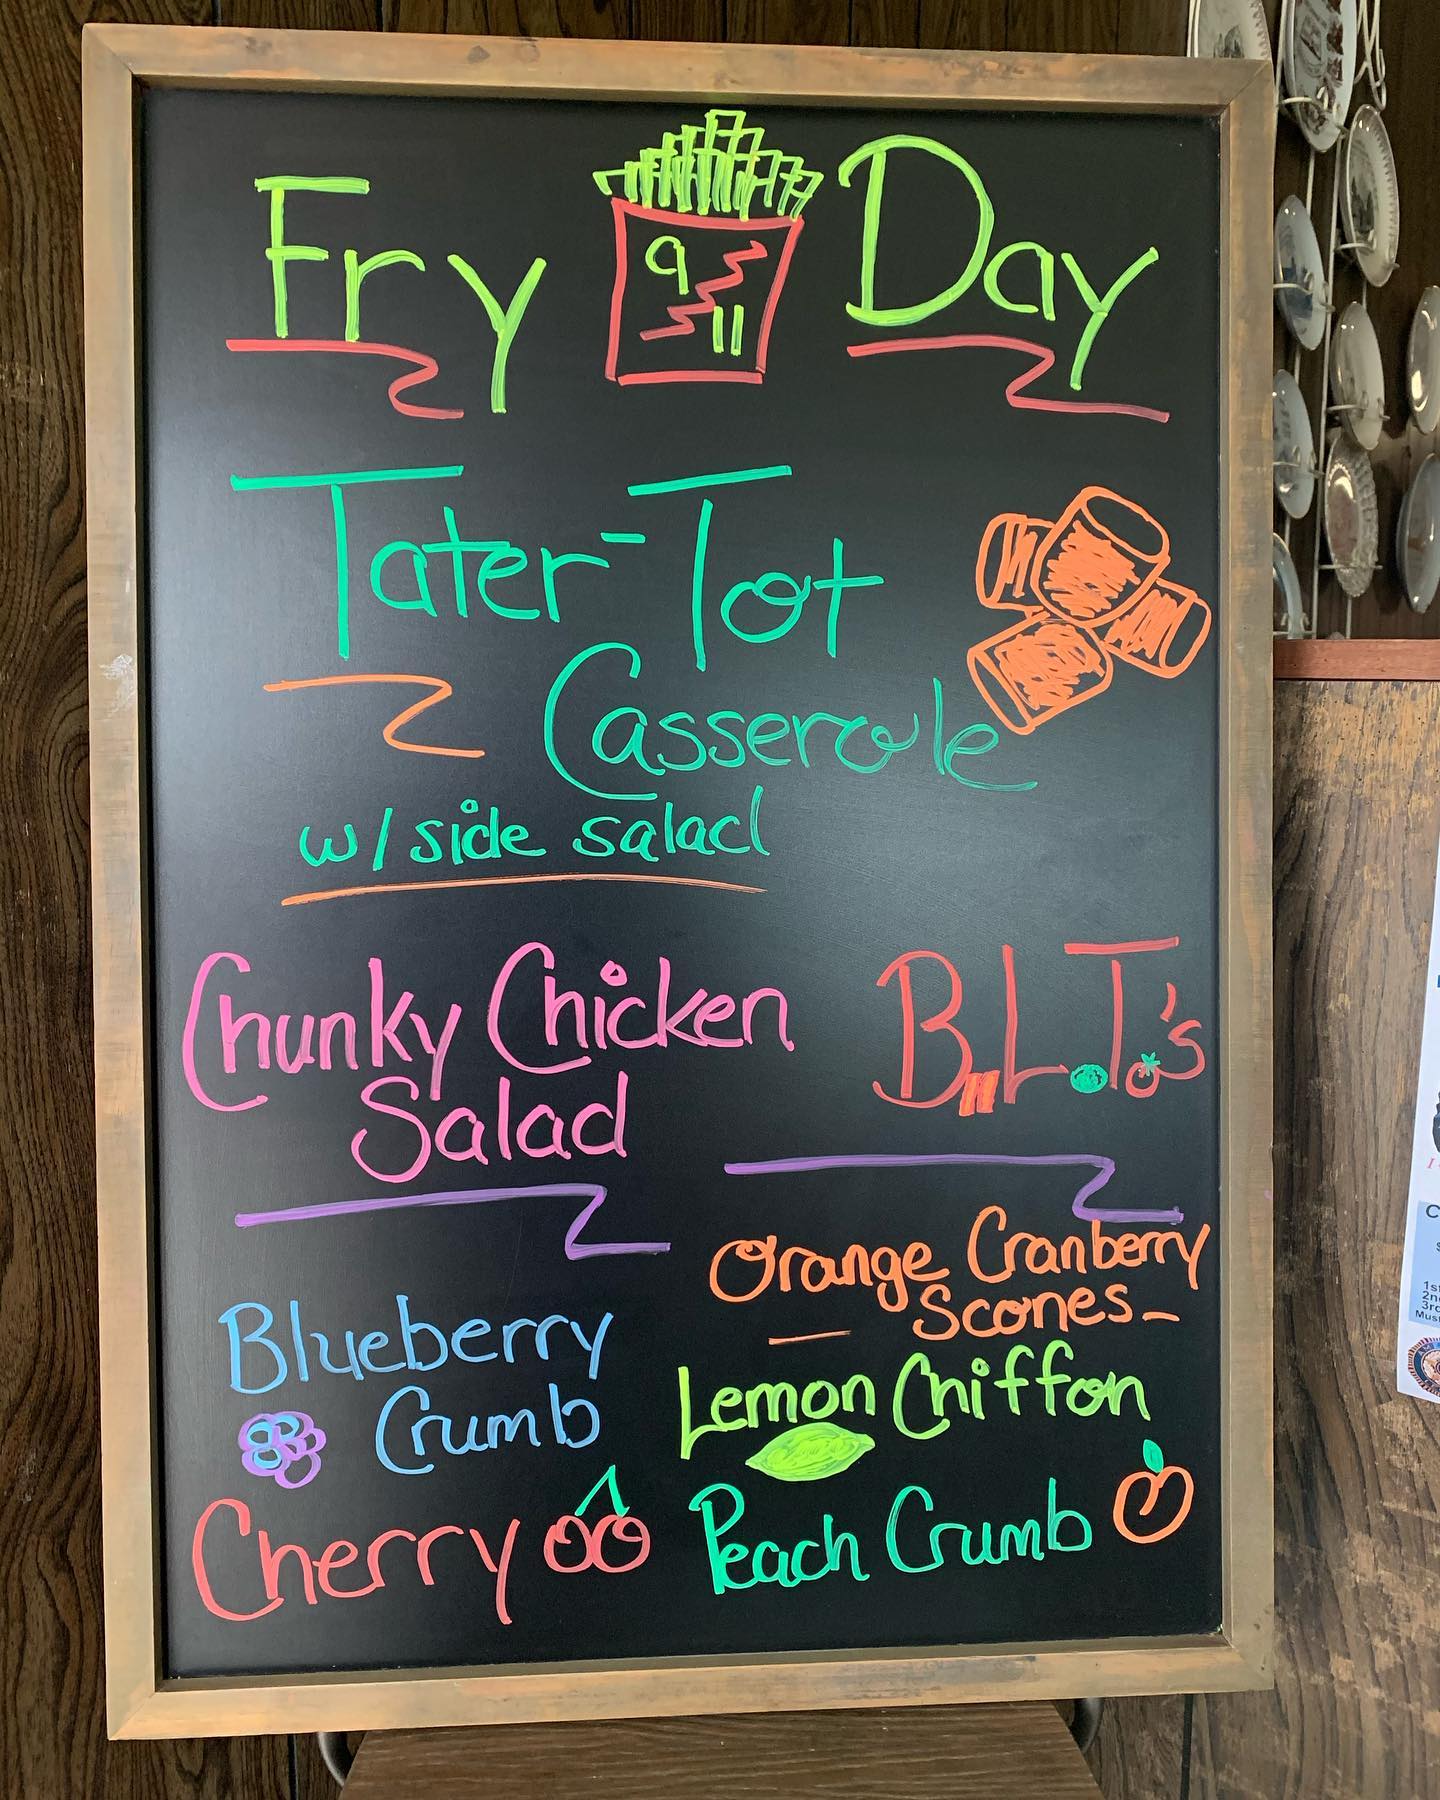 Fry Day
9
11
Tater-Tot
Casserole
w/ side salad
Chunky Chicken
Salad
B.L.T.'s
Orange Cranberry
Scones
Blueberry
Crumb
Lemon Chiffon
Cherry
Peach Crumb
1st
2nd
3rd
Must